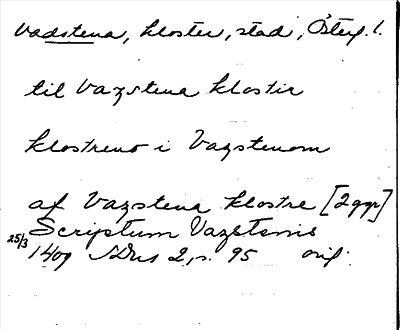 Vadstena, kloster, stad, Österg. l.
til Vazstena klostir
klostreno i Vazstenom
af Vazstena klostre [2 ggr]
Scriptum Vazstenis
25/3 1409 SDns 2, s. 95 orig.